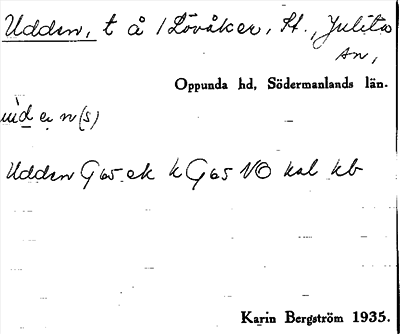 Udden, t å 1 Lövåker, St., Julita
sn,
Oppunda hd, Södermanlands län.
n(s)
Udden G65 ek k G65 NO kal kb
Karin Bergström 1935.